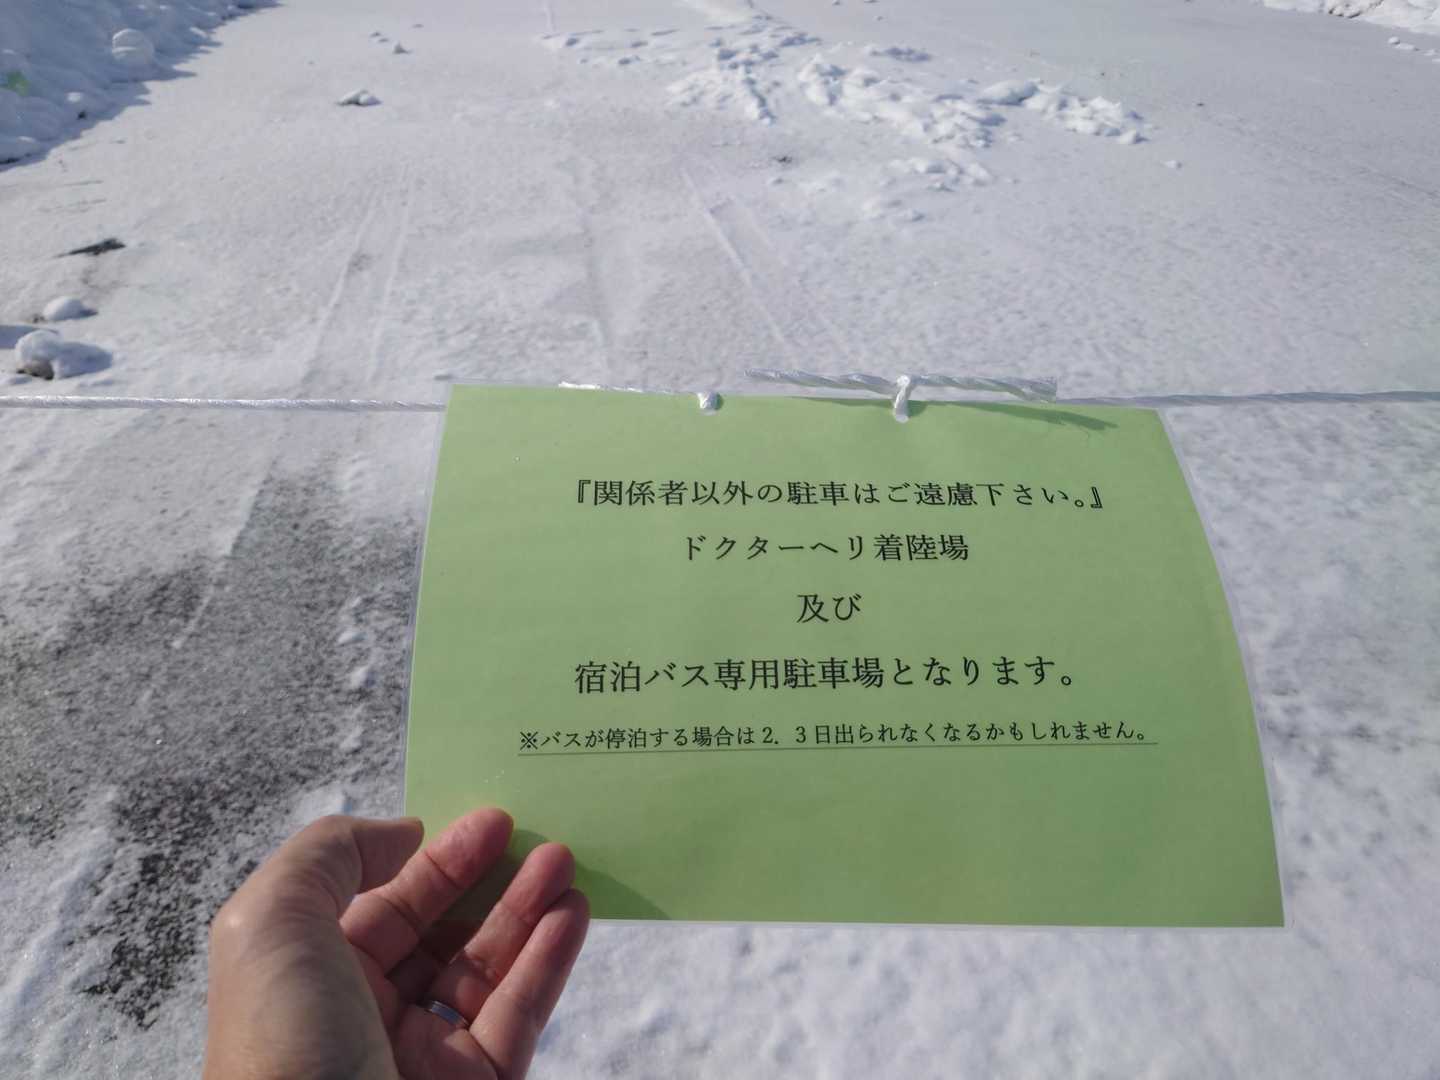 『関係者以外の駐車はご遠慮下さい。』
ドクターヘリ着陸場
及び
宿泊バス専用駐車場となります。
※バスが停泊する場合は2．3日出られなくなるかもしれません。